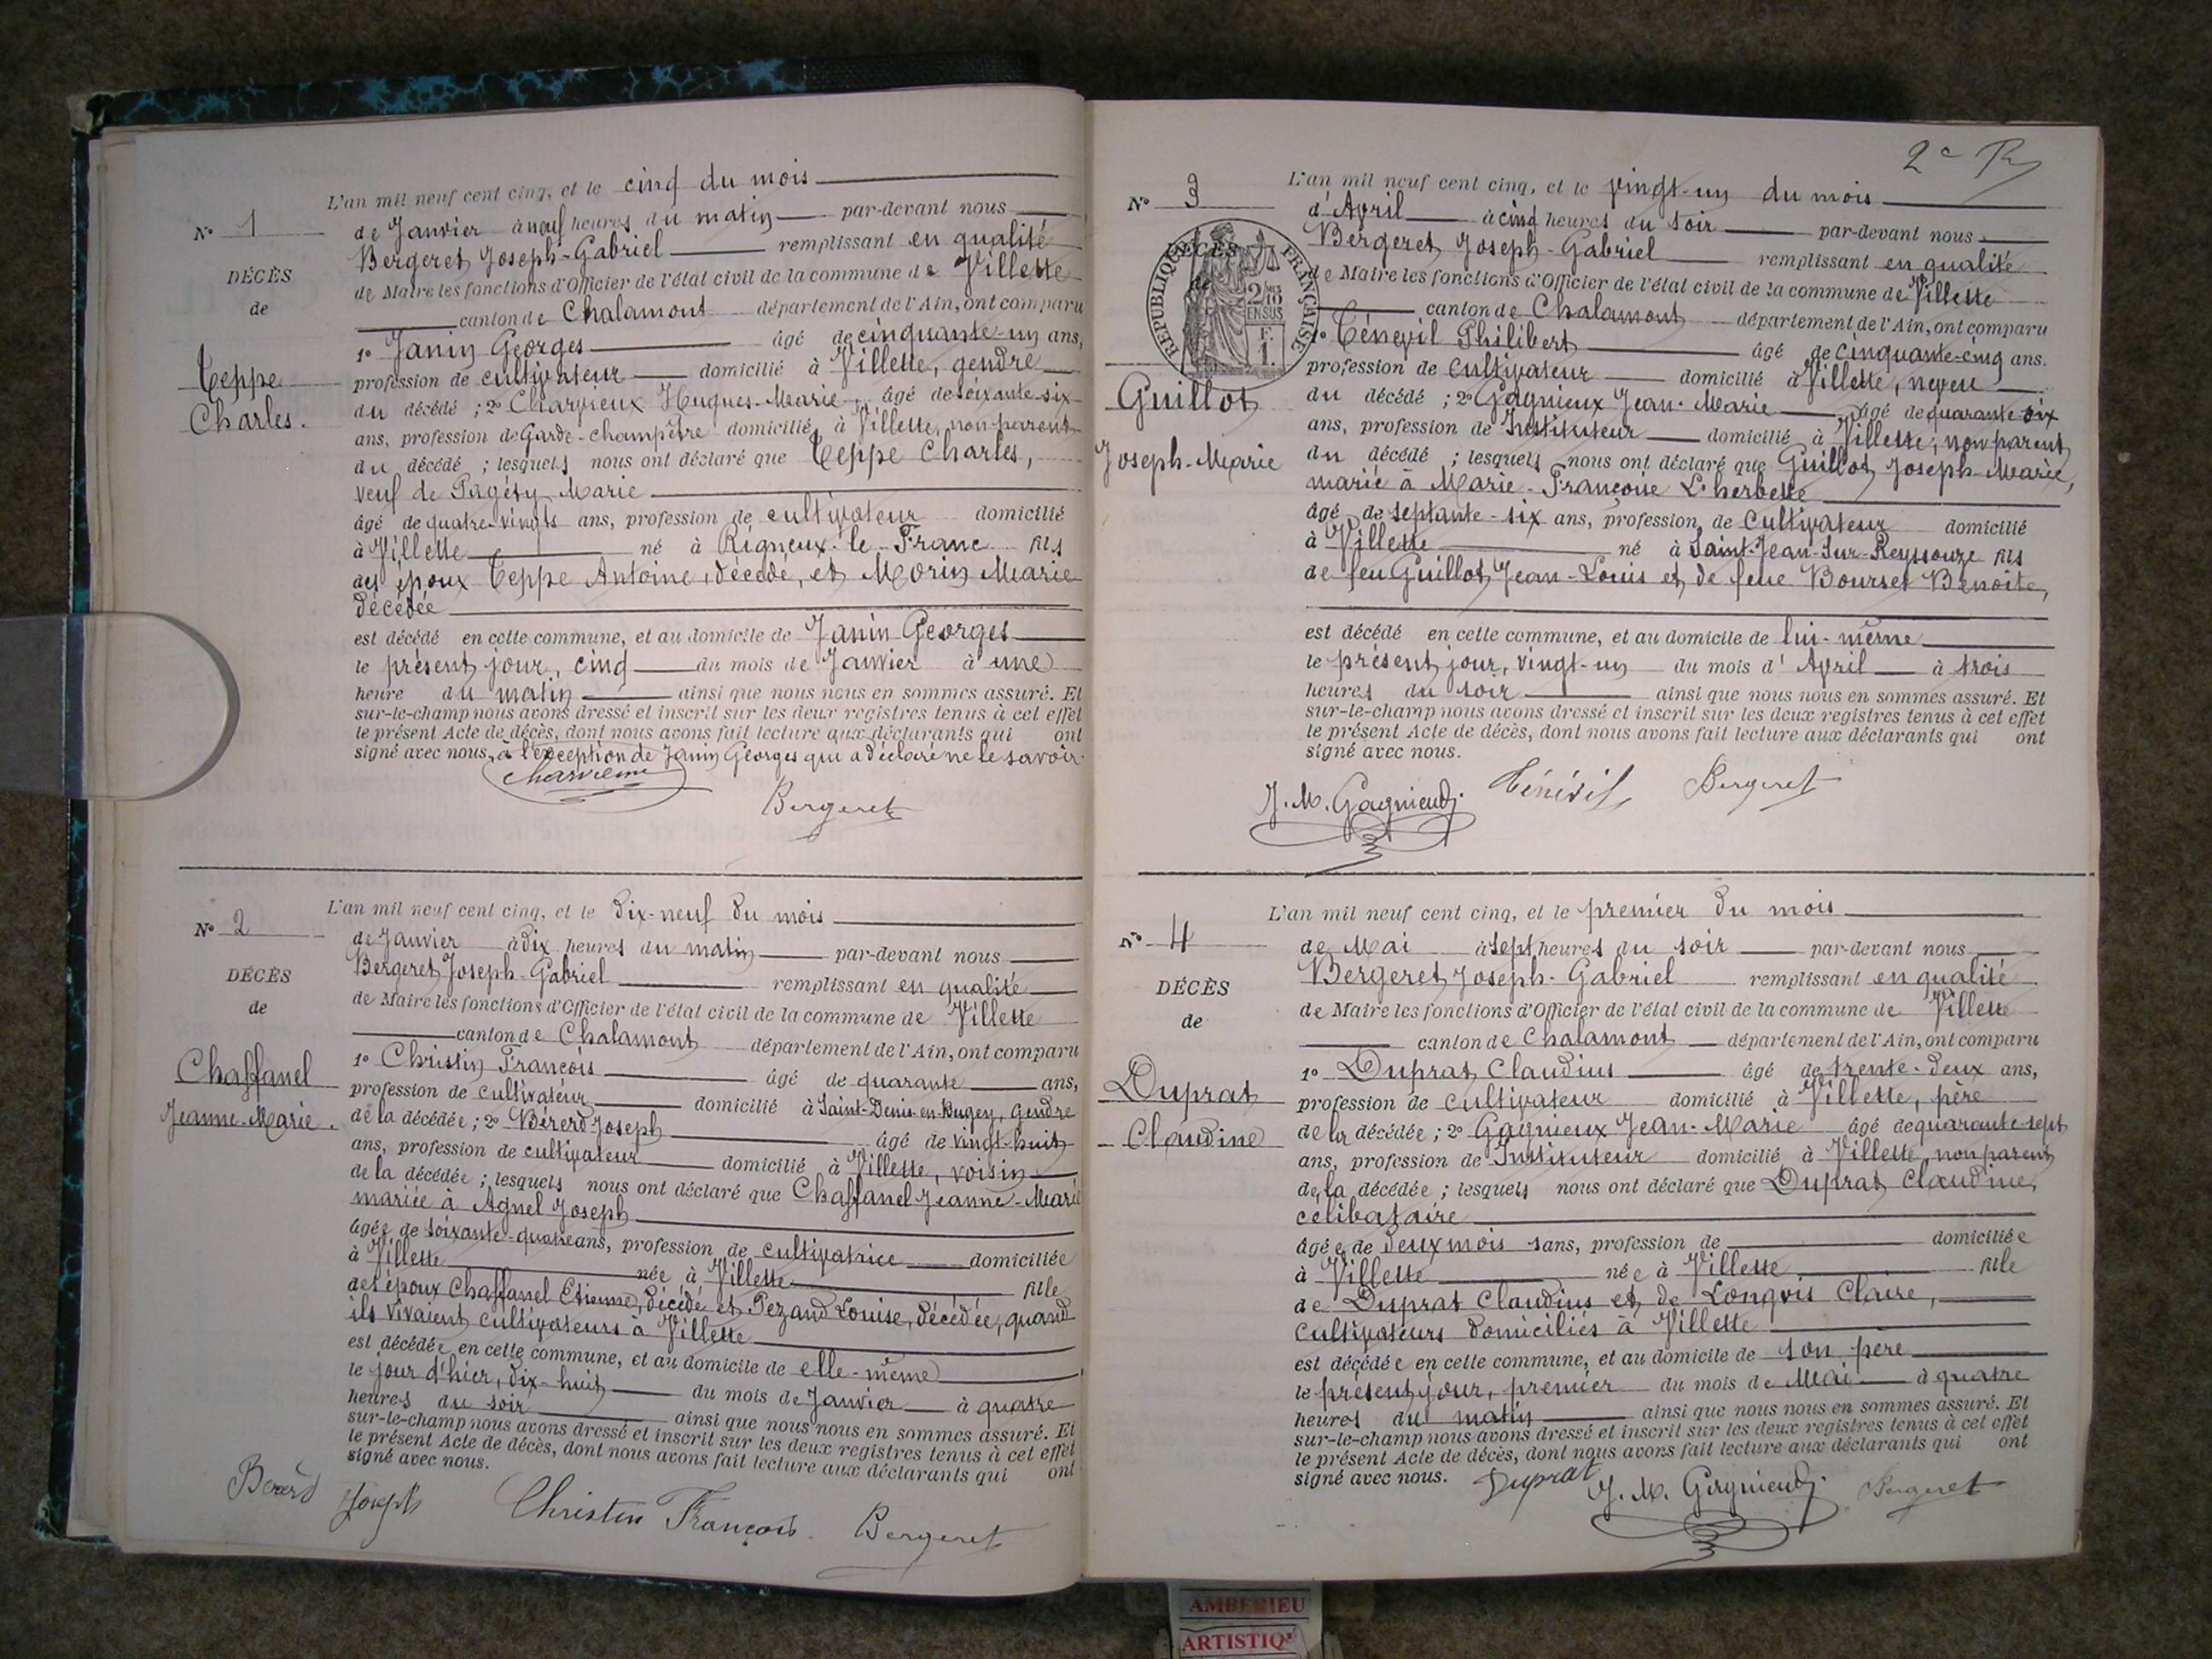 L'an mil neuf cent cinq, et le cinq du mois
N° 1
de Janvier à neuf heures du matin par-devant nous
Bergeret Joseph-Gabriel remplissant en qualité
DÉCÈS
de Maire les fonctions d'Officier de l'état civil de la commune de Villette
de
canton de Chalamont département de l'Ain, ont comparu
1° Janin Georges âgé de cinquante-un ans,
Teppe
profession de cultivateur domicilié à Villette, gendre
Charles.
du décédé ; 2° Charvieux Hugues-Marie, âgé de soixante-six
ans, profession de Garde-champêtre domicilié à Villette, non parent
du décédé ; lesquels nous ont déclaré que Teppe Charles,
veuf de Marie
âgé de quatre-vingts ans, profession de cultivateur domicilié
à Villette né à Rigneux-le-Franc fils
des époux Teppe Antoine, décédé, et Morin Marie
décédée
est décédé en cette commune, et au domicile de Janin Georges
le présent jour, cinq du mois de Janvier à une
heure du matin ainsi que nous nous en sommes assuré. Et
sur-le-champ nous avons dressé et inscrit sur les deux registres tenus à cet effet
le présent Acte de décès, dont nous avons fait lecture aux déclarants qui ont
signé avec nous, à l'exception de Janin Georges qui a déclaré ne le savoir.
Charvieux
Bergeret
L'an mil neuf cent cinq, et le dix-neuf du mois
N° 2
de Janvier à dix heures du matin par-devant nous
Bergeret Joseph-Gabriel remplissant en qualité
DÉCÈS
de Maire les fonctions d'Officier de l'état civil de la commune de Villette
de
canton de Chalamont département de l'Ain, ont comparu
1° Christin François âgé de quarante ans,
Chaffanel
profession de cultivateur domicilié à Saint-Denis-en-Bugey, Gendre
Jeanne-Marie.
de la décédée ; 2° Bérerd Joseph âgé de vingt-huit
ans, profession de cultivateur domicilié à Villette, voisin
de la décédée ; lesquels nous ont déclaré que Chaffanel Jeanne-Marie
mariée à Agnel Joseph
âgée de soixante-quatre ans, profession de cultivatrice domiciliée
à Villette née à Villette fille
des époux Chaffanel Etienne, décédé et Pezand Louise, décédée, quand
ils vivaient cultivateurs à Villette
est décédée en cette commune, et au domicile de elle-même
le jour d'hier, dix-huit du mois de Janvier à quatre
heures du soir ainsi que nous nous en sommes assuré. Et
sur-le-champ nous avons dressé et inscrit sur les deux registres tenus à cet effet
le présent Acte de décès, dont nous avons fait lecture aux déclarants qui ont
signé avec nous.
Bérerd Joseph Christin François. Bergeret
2e
L'an mil neuf cent cinq, et le vingt-un du mois
N° 3
d'Avril à cinq heures du soir par-devant nous
Bergeret Joseph-Gabriel remplissant en qualité
DÉCÈS
RÉPUBLIQUE FRANÇAISE
2/10 EN SUS
F. 1.
de Maire les fonctions d'Officier de l'état civil de la commune de Villette
de
canton de Chalamont département de l'Ain, ont comparu
1° Ténevil Philibert âgé de cinquante-cinq ans.
profession de Cultivateur domicilié à Villette, neveu
Guillot
du décédé ; 2° Gagnieux Jean-Marie âgé de quarante six
ans, profession de Instituteur domicilié à Villette, non parent
Joseph-Marie
du décédé ; lesquels nous ont déclaré que Guillot Joseph-Marie,
marié à Marie-Françoise L'herbette
âgé de septante-six ans, profession de Cultivateur domicilié
à Villette né à Saint-Jean-Sur-Reyssouze fils
de feu Guillot Jean-Louis et de feue Bourset Benoite,
est décédé en cette commune, et au domicile de lui-même
le présent jour, vingt-un du mois d'Avril à trois
heures du soir ainsi que nous nous en sommes assuré. Et
sur-le-champ nous avons dressé et inscrit sur les deux registres tenus à cet effet
le présent Acte de décès, dont nous avons fait lecture aux déclarants qui ont
signé avec nous.
J. M. Gagnieux Ténévil Bergeret
L'an mil neuf cent cinq, et le premier du mois
N° 4
de Mai à sept heures du soir par-devant nous
Bergeret Joseph-Gabriel remplissant en qualité
DÉCÈS
de Maire les fonctions d'Officier de l'état civil de la commune de Villette
de
canton de Chalamont département de l'Ain, ont comparu
1° Duprat Claudius âgé de trente-deux ans,
Duprat
profession de cultivateur domicilié à Villette, père
Claudine
de la décédée ; 2° Gagnieux Jean-Marie âgé de quarante-sept
ans, profession de Instituteur domicilié à Villette non parent
de la décédée ; lesquels nous ont déclaré que Duprat Claudine,
célibataire
âgée de deux mois sans, profession de domiciliée
à Villette née à Villette fille
de Duprat Claudius et de Longvis Claire,
cultivateurs domiciliés à Villette
est décédée en cette commune, et au domicile de son père
le présent jour, premier du mois de Mai à quatre
heures du matin ainsi que nous nous en sommes assuré. Et
sur-le-champ nous avons dressé et inscrit sur les deux registres tenus à cet effet
le présent Acte de décès, dont nous avons fait lecture aux déclarants qui ont
signé avec nous. Duprat J. M. Gagnieux Bergeret
AMBERIEU
ARTISTIQ